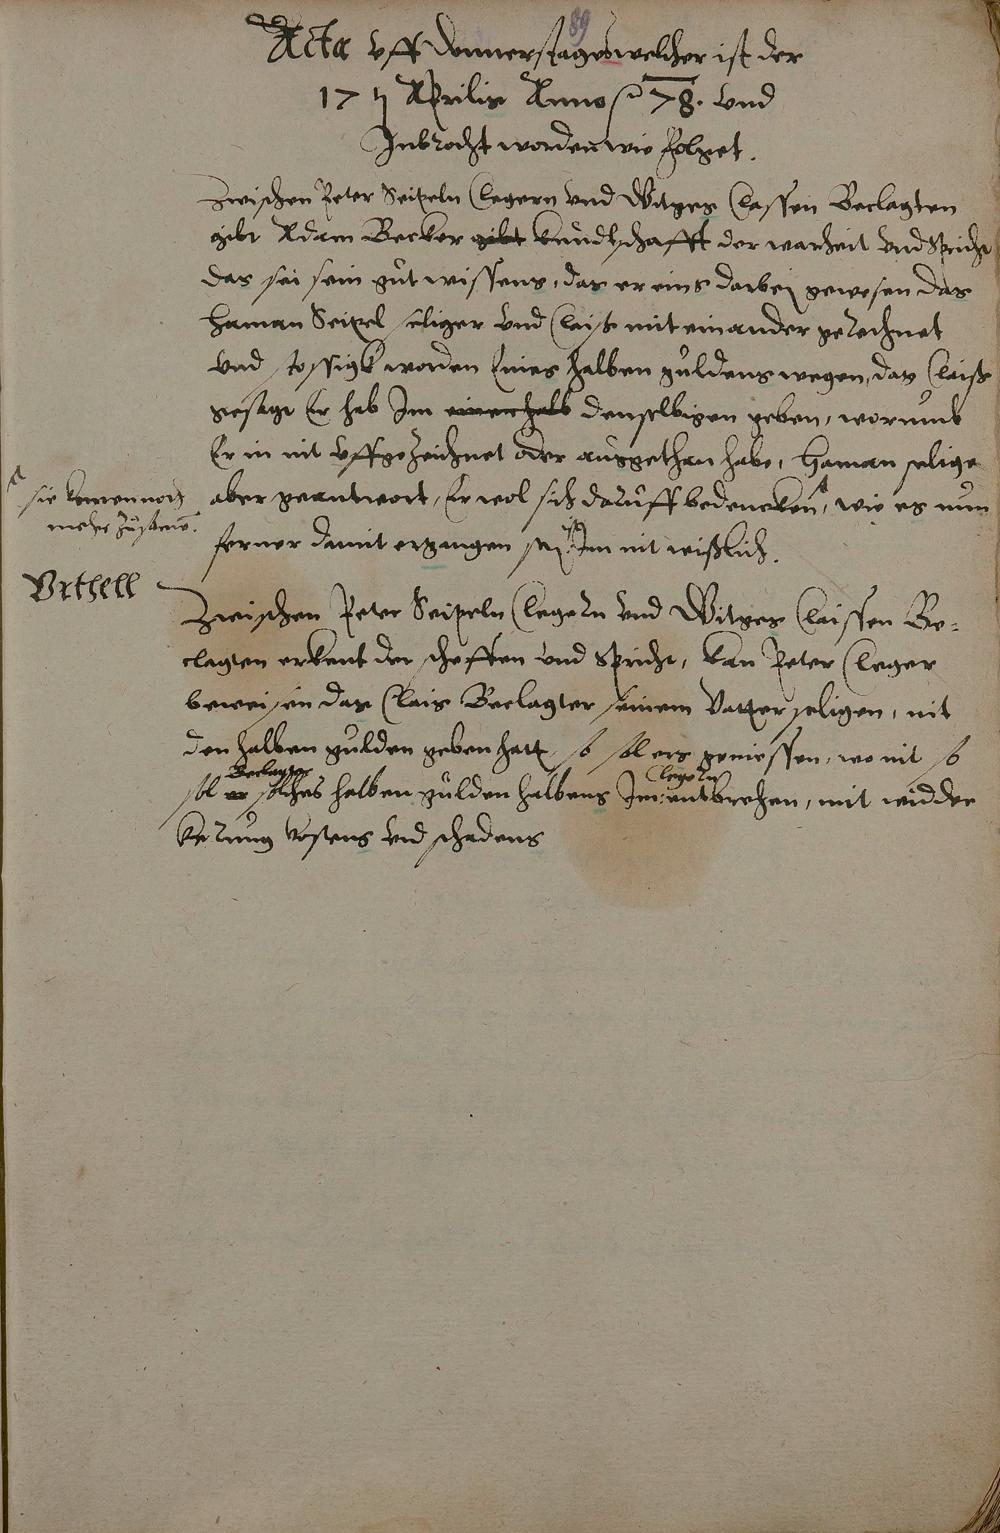 89
Acta uff Donnerstags welcher ist der
17 Aprilis Anno 78. und
Inbrocht worden wie Folget.
Zwischen Peter Seipeln Clegern und Witges Classen Beclagten
gibt Adam Becker gibt kundtschafft der warheit und Spricht
das sei sein gut wissens, das er eins darbei gewesen das
Haman Seipel seliger und Claiß mit einander gerechnet
und stossigk worden Eines halben guldens wegen, das Claiß
gesagt Er hab Im einen halb denselbigen geben, worumb
Er in nit uffgezeichnet oder ausgethan habe, Haman selige
aber geantwort, Er wol sich daruff bedencken, wie es nun
sie kemen noch
meher zusamen.
ferner damit ergangen sey Im nit wißlich.
Urthell
Zwischen Peter Seipeln Clegern und Witges Claissen Be=
clagten erkent der scheffen und Spricht, kan Peter Cleger
beweisen das Clais Beclagter seinem Vatter seligen, nit
den halben gulden geben hatt, so sol ers geniessen, wo nit so
Beclagter Clegern
sol er solches halben gulden halbens Im entbrechen, mit widder
kerung kostens und schadens